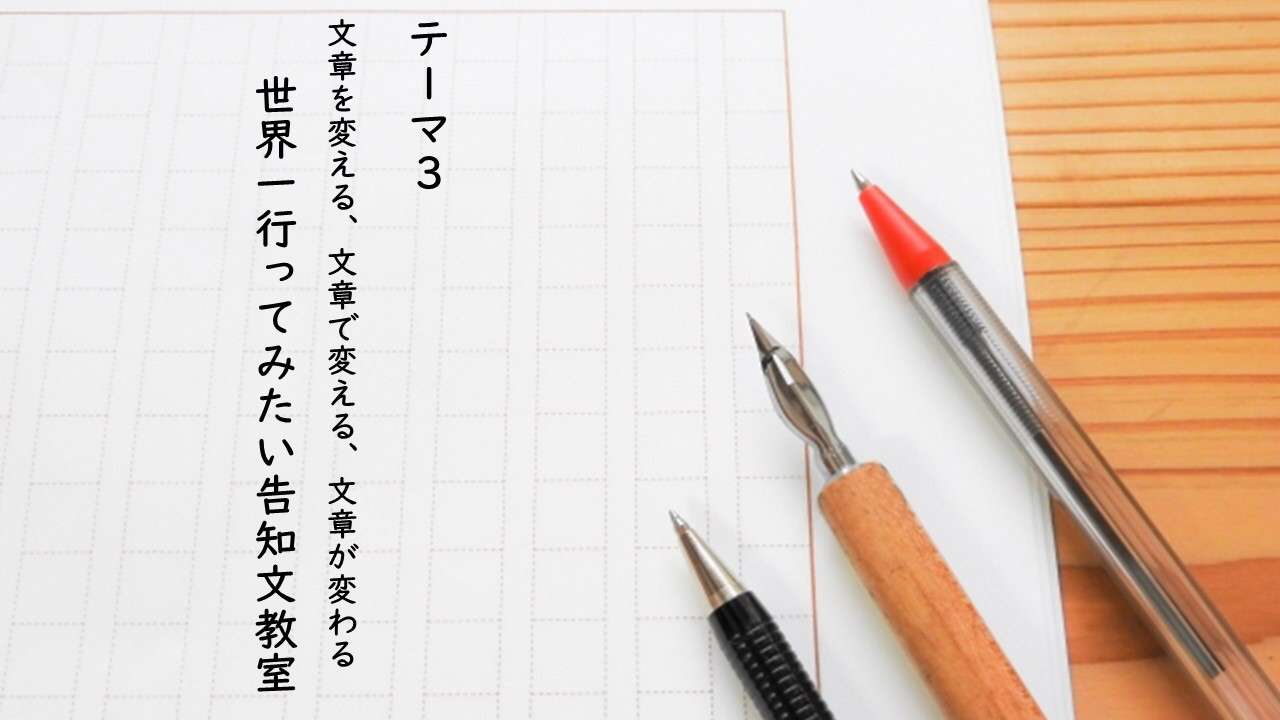 テーマ３
文章を変える、文章で変える、文章が変わる
世界一行ってみたい告知文教室